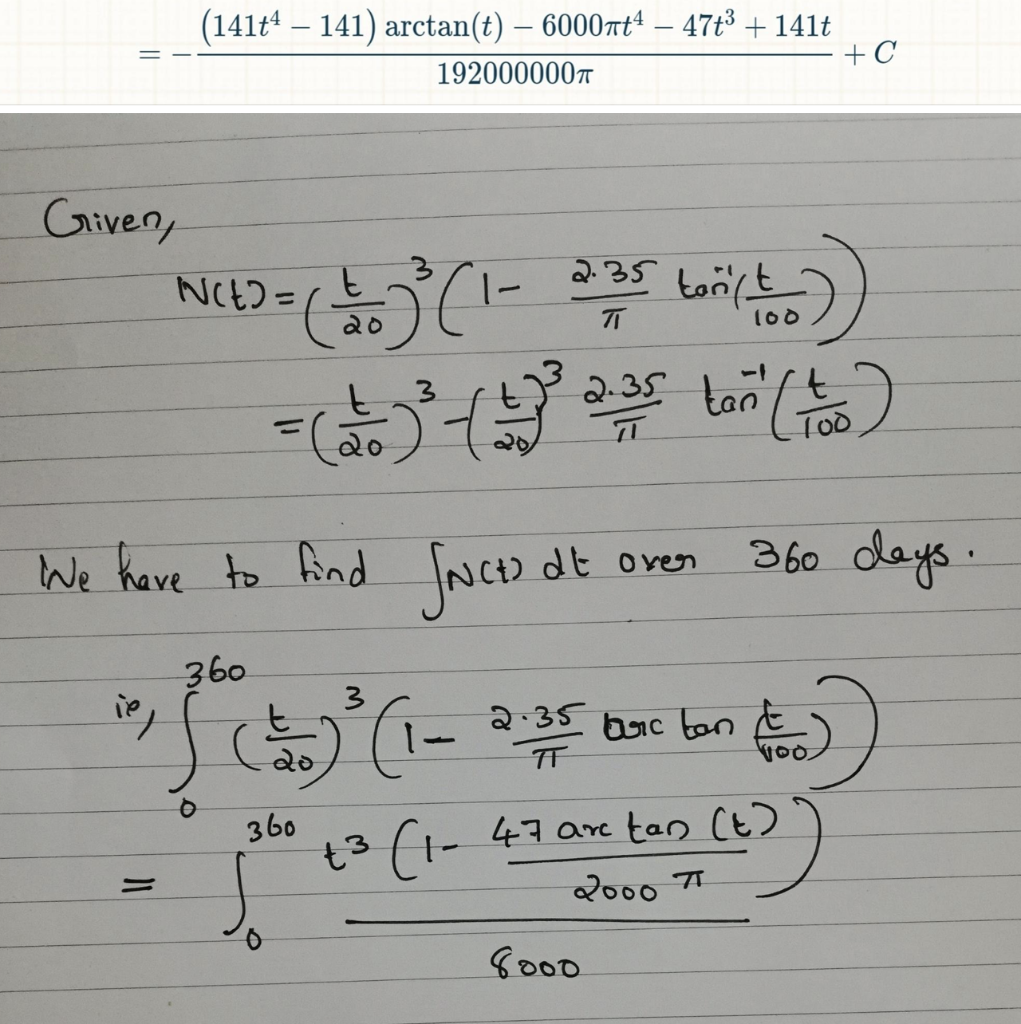 = -\frac{(141t^4 - 141) arctan(t) - 6000πt^4 - 47t^3 + 141t}{192000000π} + C
Given,
N(t) = (\frac{t}{20})^3 (1 - \frac{2.35}{π} tan^{-1}(\frac{t}{100}))
= (\frac{t}{20})^3 - (\frac{t}{20})^3 \frac{2.35}{π} tan^{-1}(\frac{t}{100})
We have to find ∫N(t) dt over 360 days.
ie, ∫_0^{360} (\frac{t}{20})^3 (1 - \frac{2.35}{π} arc tan (\frac{t}{100}))
= ∫_0^{360} \frac{t^3 (1 - \frac{47 arc tan (t)}{2000 π})}{8000}